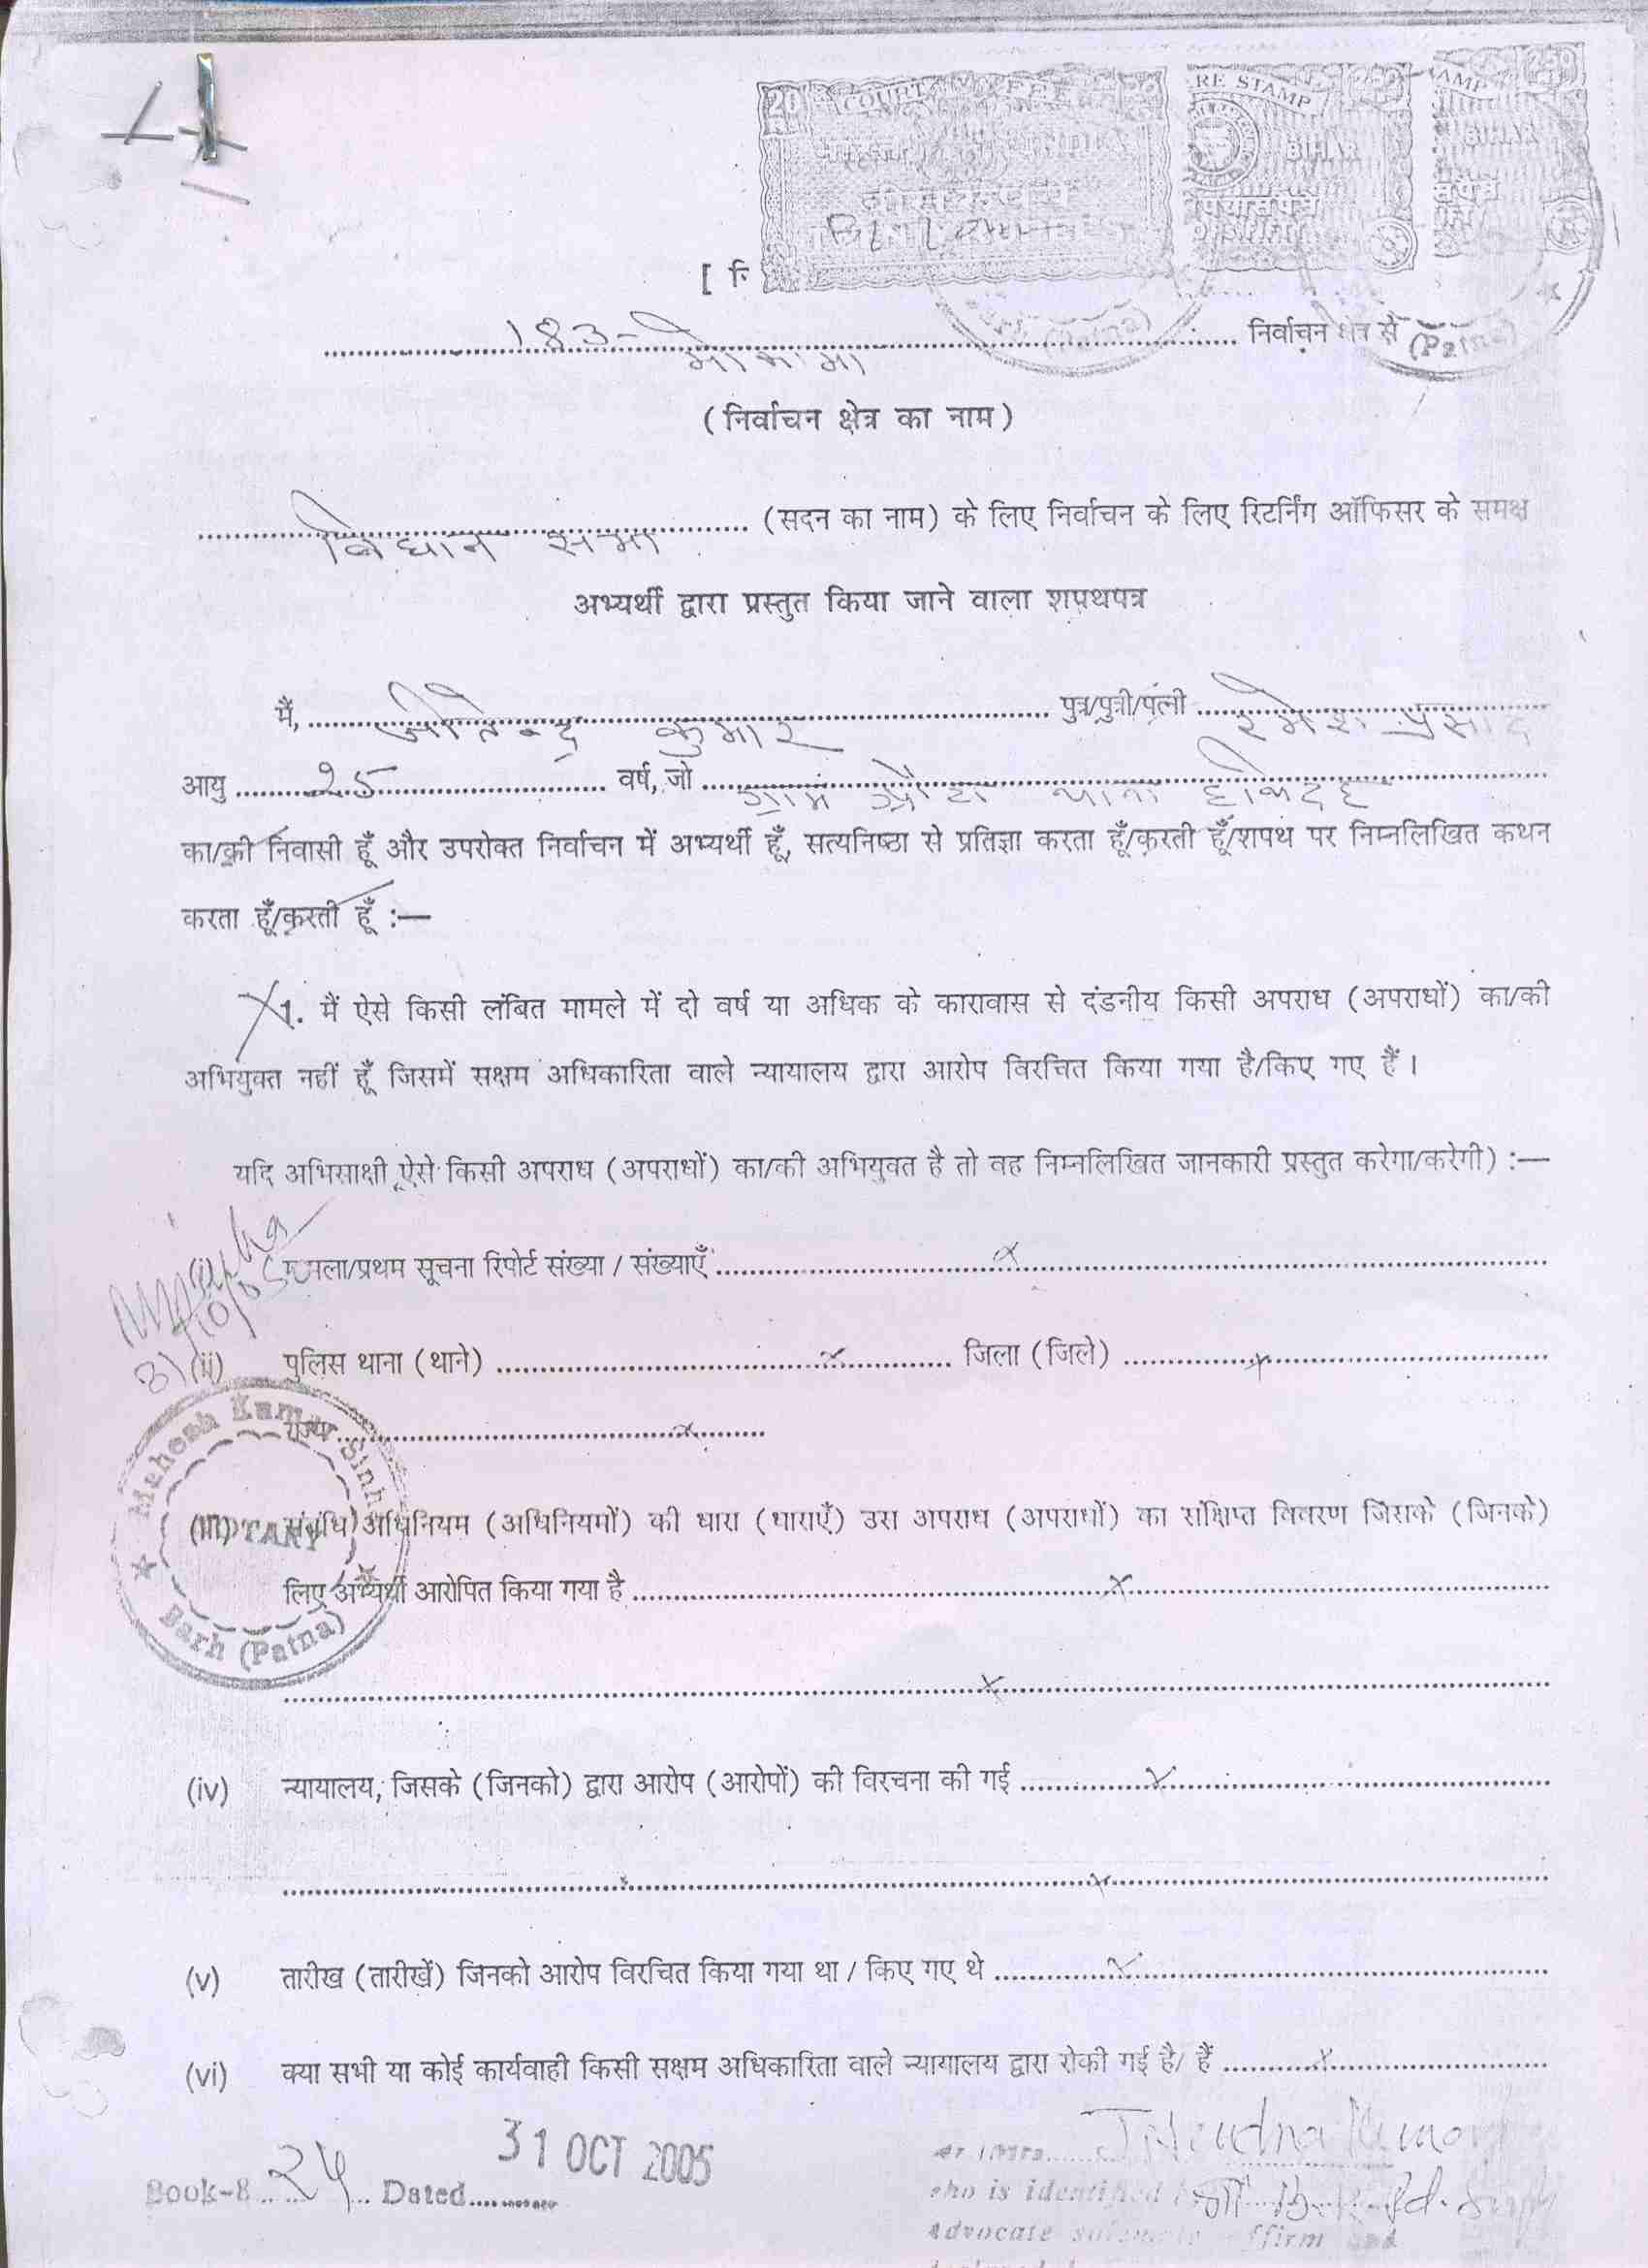 20 COURT FEE
INDIA
RE STAMP 250 BIHAR
AMP 250 BIHAR
[ नि
183- मोकामा निर्वाचन क्षेत्र से
(Patna) (Patna)
(निर्वाचन क्षेत्र का नाम)
विधान सभा (सदन का नाम) के लिए निर्वाचन के लिए रिटर्निंग ऑफिसर के समक्ष
अभ्यर्थी द्वारा प्रस्तुत किया जाने वाला शपथपत्र
मैं, जीतेन्द्र कुमार पुत्र/पुत्री/पत्नी रमेश प्रसाद
आयु 25 वर्ष, जो ग्राम थाना
का/की निवासी हूँ और उपरोक्त निर्वाचन में अभ्यर्थी हूँ, सत्यनिष्ठा से प्रतिज्ञा करता हूँ/करती हूँ/शपथ पर निम्नलिखित कथन
करता हूँ/करती हूँ :—
1. मैं ऐसे किसी लंबित मामले में दो वर्ष या अधिक के कारावास से दंडनीय किसी अपराध (अपराधों) का/की
अभियुक्त नहीं हूँ जिसमें सक्षम अधिकारिता वाले न्यायालय द्वारा आरोप विरचित किया गया है/किए गए हैं ।
यदि अभिसाक्षी ऐसे किसी अपराध (अपराधों) का/की अभियुक्त है तो वह निम्नलिखित जानकारी प्रस्तुत करेगा/करेगी) :—
(i) मामला/प्रथम सूचना रिपोर्ट संख्या / संख्याएँ x
(ii) पुलिस थाना (थाने) x जिला (जिले) x
राज्य x
(iii) संबंधि अधिनियम (अधिनियमों) की धारा (धाराएँ) उस अपराध (अपराधों) का संक्षिप्त विवरण जिसके (जिनके)
लिए अभ्यर्थी आरोपित किया गया है x
x
Mahesh Kumar Singh
NOTARY
Barh (Patna)
(iv) न्यायालय, जिसके (जिनको) द्वारा आरोप (आरोपों) की विरचना की गई x
x
(v) तारीख (तारीखें) जिनको आरोप विरचित किया गया था / किए गए थे x
(vi) क्या सभी या कोई कार्यवाही किसी सक्षम अधिकारिता वाले न्यायालय द्वारा रोकी गई है/ हैं x
31 OCT 2005
Book-8 24 Dated
Jitendra Kumar
who is identified
Advocate solemnly affirm and